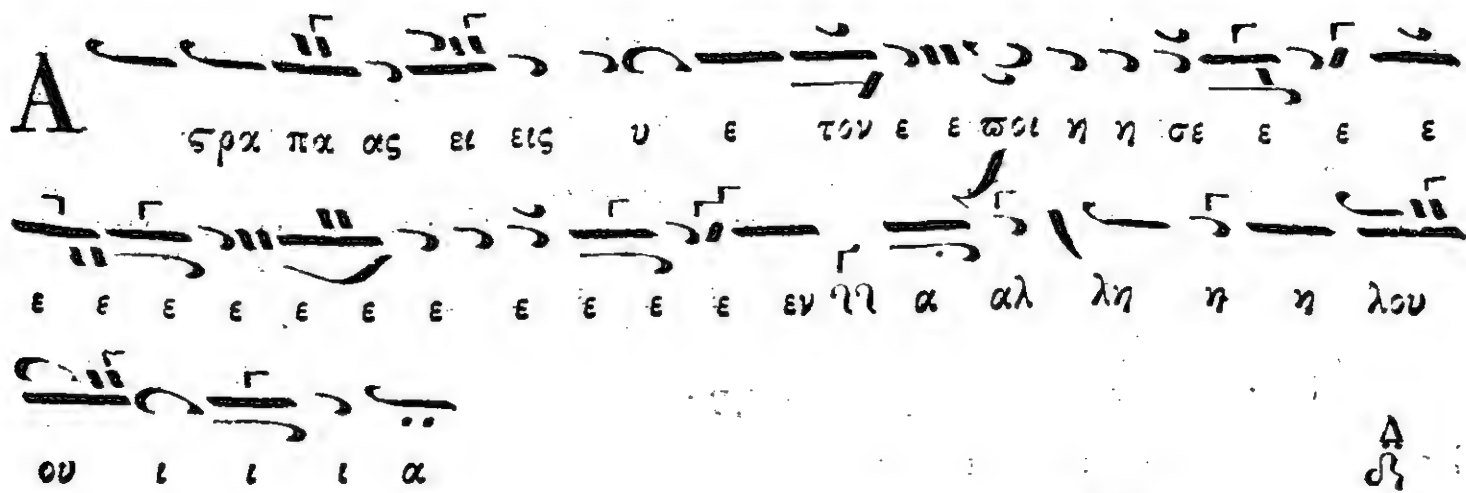 Α ϛρα πα ας ει εις υ ε τον ε ε ϖοι η η σε ε ε ε
ε ε ε ε ε ε ε ε ε ε ε εν α αλ λη η η λου
ου ι ι ι α